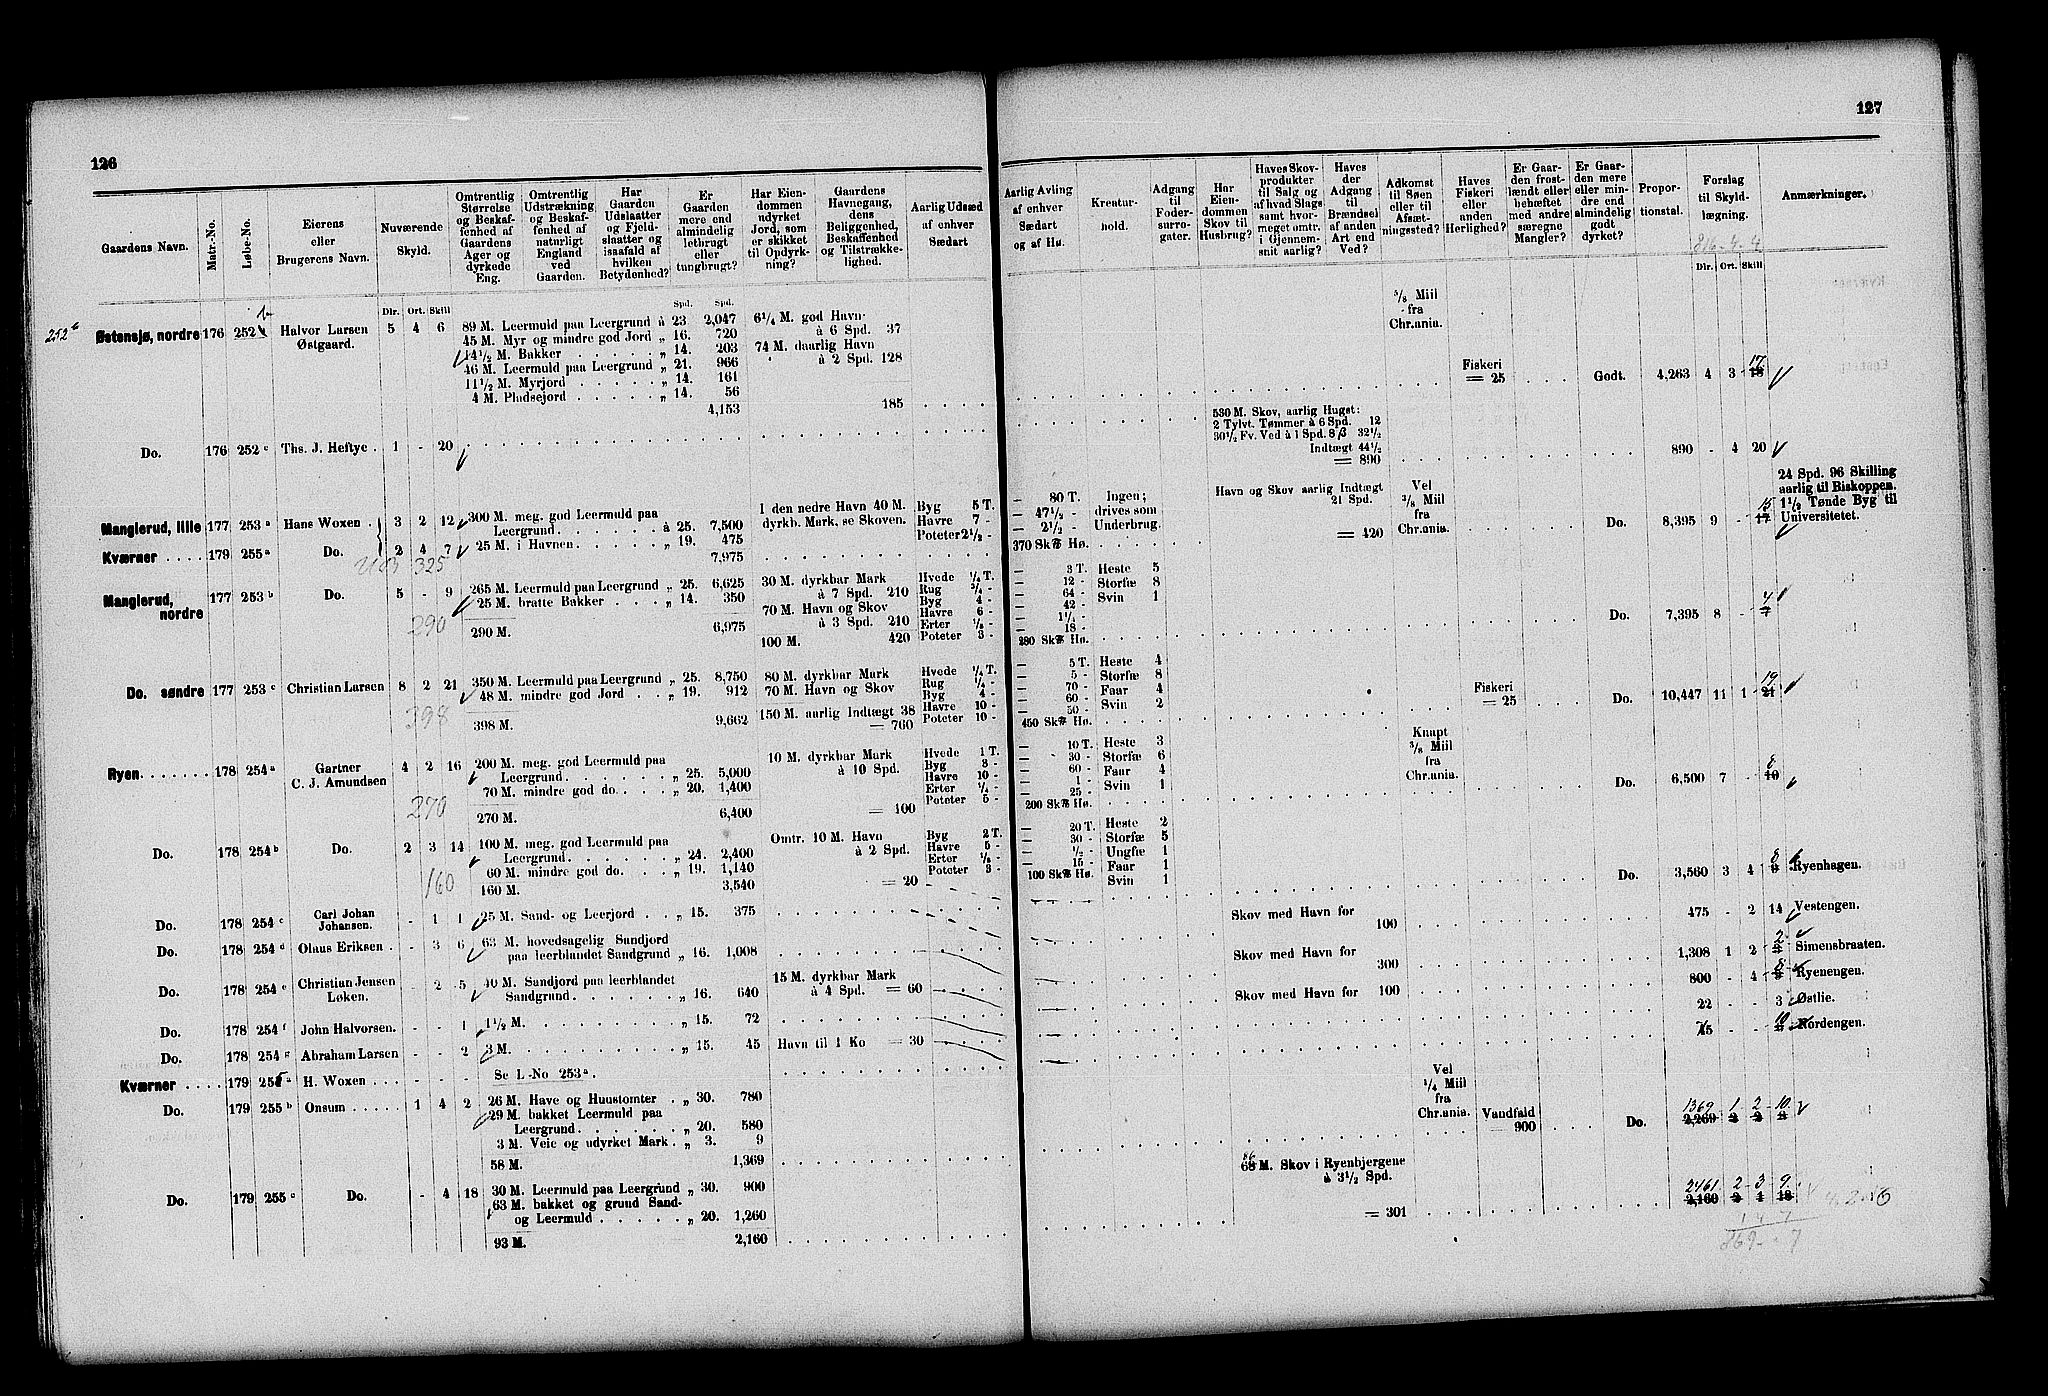 126
Gaardens Navn. Matr.-No. Løbe-No. Eierens eller Brugerens Navn. Nuværende Skyld. Omtrentlig Størrelse og Beskaffenhed af Gaardens Ager og dyrkede Eng. Omtrentlig Udstrækning og Beskaffenhed af naturligt England ved Gaarden. Har Gaarden Udslaatter og Fjeldslaatter og isaafald af hvilken Betydenhed? Er Gaarden mere end almindelig letbrugt eller tungbrugt? Har Eiendommen udyrket Jord, som er skikket til Opdyrkning? Gaardens Havnegang, dens Beliggenhed, Beskaffenhed og Tilstrækkelighed. Aarlig Udsæd af enhver Sædart
Dlr. Ort. Skill Spd. Spd.
252 a Østensjø, nordre 176 252 b Halvor Larsen Østgaard. 5 4 6 89 M. Leermuld paa Leergrund à 23 2,047 6¼ M. god Havn
45 M. Myr og mindre god Jord „ 16. 720 à 6 Spd. 37
14½ M. Bakker „ 14. 203 74 M. daarlig Havn
46 M. Leermuld paa Leergrund „ 21. 966 à 2 Spd. 128
11½ M. Myrjord „ 14. 161
4 M. Pladsejord „ 14. 56
4,153 185
Do. 176 252 c Ths. J. Heftye 1 - 20
Manglerud, lille 177 253 a Hans Woxen 3 2 12 300 M. meg. god Leermuld paa Leergrund à 25. 7,500 I den nedre Havn 40 M. dyrkb. Mark, se Skoven. Byg 5 T. Havre 7 - Poteter 2½ -
Kværner 179 255 a Do. 2 4 7 25 M. i Havnen „ 19. 475
325 7,975
Manglerud, nordre 177 253 b Do. 5 - 9 265 M. Leermuld paa Leergrund „ 25. 6,625 30 M. dyrkbar Mark Hvede ¼ T.
25 M. bratte Bakker „ 14. 350 à 7 Spd. 210 Rug ¾ -
70 M. Havn og Skov Byg 4 -
290 290 M. 6,975 à 3 Spd. 210 Havre 6 - Erter ⅛ -
100 M. 420 Poteter 3 -
Do. søndre 177 253 c Christian Larsen 8 2 21 350 M. Leermuld paa Leergrund „ 25. 8,750 80 M. dyrkbar Mark Hvede ¼ T.
48 M. mindre god Jord „ 19. 912 70 M. Havn og Skov Rug ¼ - Byg 4 -
398 398 M. 9,662 150 M. aarlig Indtægt 38 = 760 Havre 10 - Poteter 10 -
Ryen 178 254 a Gartner C. J. Amundsen 4 2 16 200 M. meg. god Leermuld paa Leergrund „ 25. 5,000 10 M. dyrkbar Mark à 10 Spd. Hvede 1 T. Byg 3 - Havre 10 -
70 M. mindre god do. „ 20. 1,400 Erter ¼ -
270 270 M. 6,400 = 100 Poteter 5 -
Do. 178 254 b Do. 2 3 14 100 M. meg. god Leermuld paa Leergrund „ 24. 2,400 Omtr. 10 M. Havn à 2 Spd. Byg 2 T. Havre 5 -
60 M. mindre god do. „ 19. 1,140 Erter ⅛ -
160 160 M. 3,540 = 20 Poteter 3 -
Do. 178 254 c Carl Johan Johansen. - 1 1 25 M. Sand- og Leerjord „ 15. 375
Do. 178 254 d Olaus Eriksen - 3 6 63 M. hovedsagelig Sandjord paa leerblandet Sandgrund „ 16. 1,008
Do. 178 254 e Christian Jensen Løken. - 2 5 40 M. Sandjord paa leerblandet Sandgrund „ 16. 640 15 M. dyrkbar Mark à 4 Spd. = 60
Do. 178 254 f John Halvorsen. - - 1 1½ M. „ 15. 72
Do. 178 254 g Abraham Larsen - - 2 3 M. „ 15. 45 Havn til 1 Ko = 30
Kværner 179 255 a H. Woxen - - - Se L-No 253 a.
Do. 179 255 b Onsum 1 4 2 26 M. Have og Huustomter „ 30. 780
29 M. bakket Leermuld paa Leergrund „ 20. 580
3 M. Veie og udyrket Mark „ 3. 9
58 M. 1,369
Do. 179 255 c Do. - 4 18 30 M. Leermuld paa Leergrund „ 30. 900
63 M. bakket og grund Sand- og Leermuld „ 20. 1,260
93 M. 2,160
127
Aarlig Avling af enhver Sædart og af Hø. Kreaturhold. Adgang til Fodersurrogater. Har Eiendommen Skov til Husbrug? Haves Skovprodukter til Salg og af hvad Slags samt hvormeget omtr. i Gjennemsnit aarlig? Haves der Adgang til Brændsel af anden Art end Ved? Adkomst til Søen eller til Afsætningssted? Haves Fiskeri eller anden Herlighed? Er Gaarden frostlændt eller behæftet med andre særegne Mangler? Er Gaarden mere eller mindre end almindelig godt dyrket? Proportionstal. Forslag til Skyldlægning. Anmærkninger.
816-4-4
Dlr. Ort. Skill
⅝ Miil fra Chr.ania.
Fiskeri = 25 Godt. 4,263 4 3 18 17
530 M. Skov, aarlig Hugst:
2 Tylvt. Tømmer à 6 Spd. 12
30½ Fv. Ved à 1 Spd. 8 ẞ 32½
Indtægt 44½
= 890 890 - 4 20
80 T. Ingen; Havn og Skov aarlig Indtægt 21 Spd. Vel ⅜ Miil fra Chr.ania. 24 Spd. 96 Skilling aarlig til Biskoppen. 1½ Tønde Byg til Universitetet.
47½ - drives som
2½ - Underbrug. = 420 Do. 8,395 9 - 17 15
370 Sk℔ Hø.
3 T. Heste 5
12 - Storfæ 8
64 - Svin 1
42 -
1¼ - Do. 7,395 8 - 7 4
18 -
280 Sk℔ Hø.
5 T. Heste 4
5 - Storfæ 8
70 - Faar 4 Fiskeri = 25 Do. 10,447 11 1 21 19
60 - Svin 2
50 -
450 Sk℔ Hø.
10 T. Heste 3 Knapt ⅜ Miil fra Chr.ania.
30 - Storfæ 6
60 - Faar 4
1 - Svin 1 Do. 6,500 7 - 10 8
25 -
200 Sk℔ Hø.
20 T. Heste 2
30 - Storfæ 5
½ - Ungfæ 1
15 - Faar 1
100 Sk℔ Hø. Svin 1 Do. 3,560 3 4 9 8 Ryenhagen.
Skov med Havn for 100 475 - 2 14 Vestengen.
Skov med Havn for 300 1,308 1 2 2 Simensbraaten.
Skov med Havn for 100 800 - 4 8 Ryenengen.
22 - - 3 Østlie.
75 - - 10 Nordengen.
Vel ¼ Miil fra Chr.ania. Vandfald 900 Do. 1369 1 2 10
2,269 2 2 8
68 86 M. Skov i Ryenbjergene à 3½ Spd. = 301 2461 2 3 9
2,160 2 1 18
869 - 7